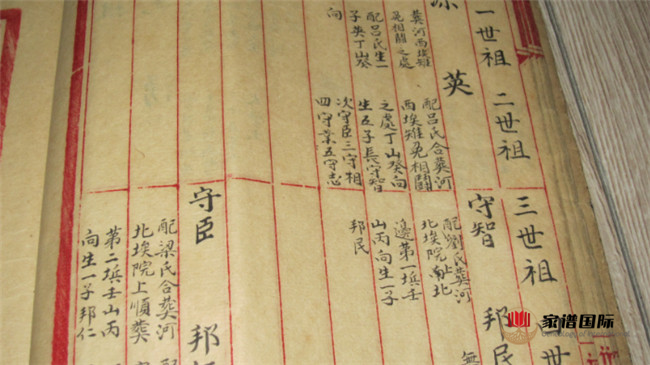 一世祖
二世祖
三世祖
世祖
葬河西埃雉
兔相鬭之處
配呂氏生一
子英丁山癸
向
英
配呂氏合葬河
西埃雉兔相鬭
之處丁山癸向
生五子長守智
次守臣三守相
四守業五守志
守智
配劉氏葬河
北埃院南北
邊第一塓壬
山丙向生一子
邦民
邦民
無
守臣
配梁氏合葬河
北埃院上順葬
第二塓壬山丙
向生一子邦仁
邦
配
家谱国际